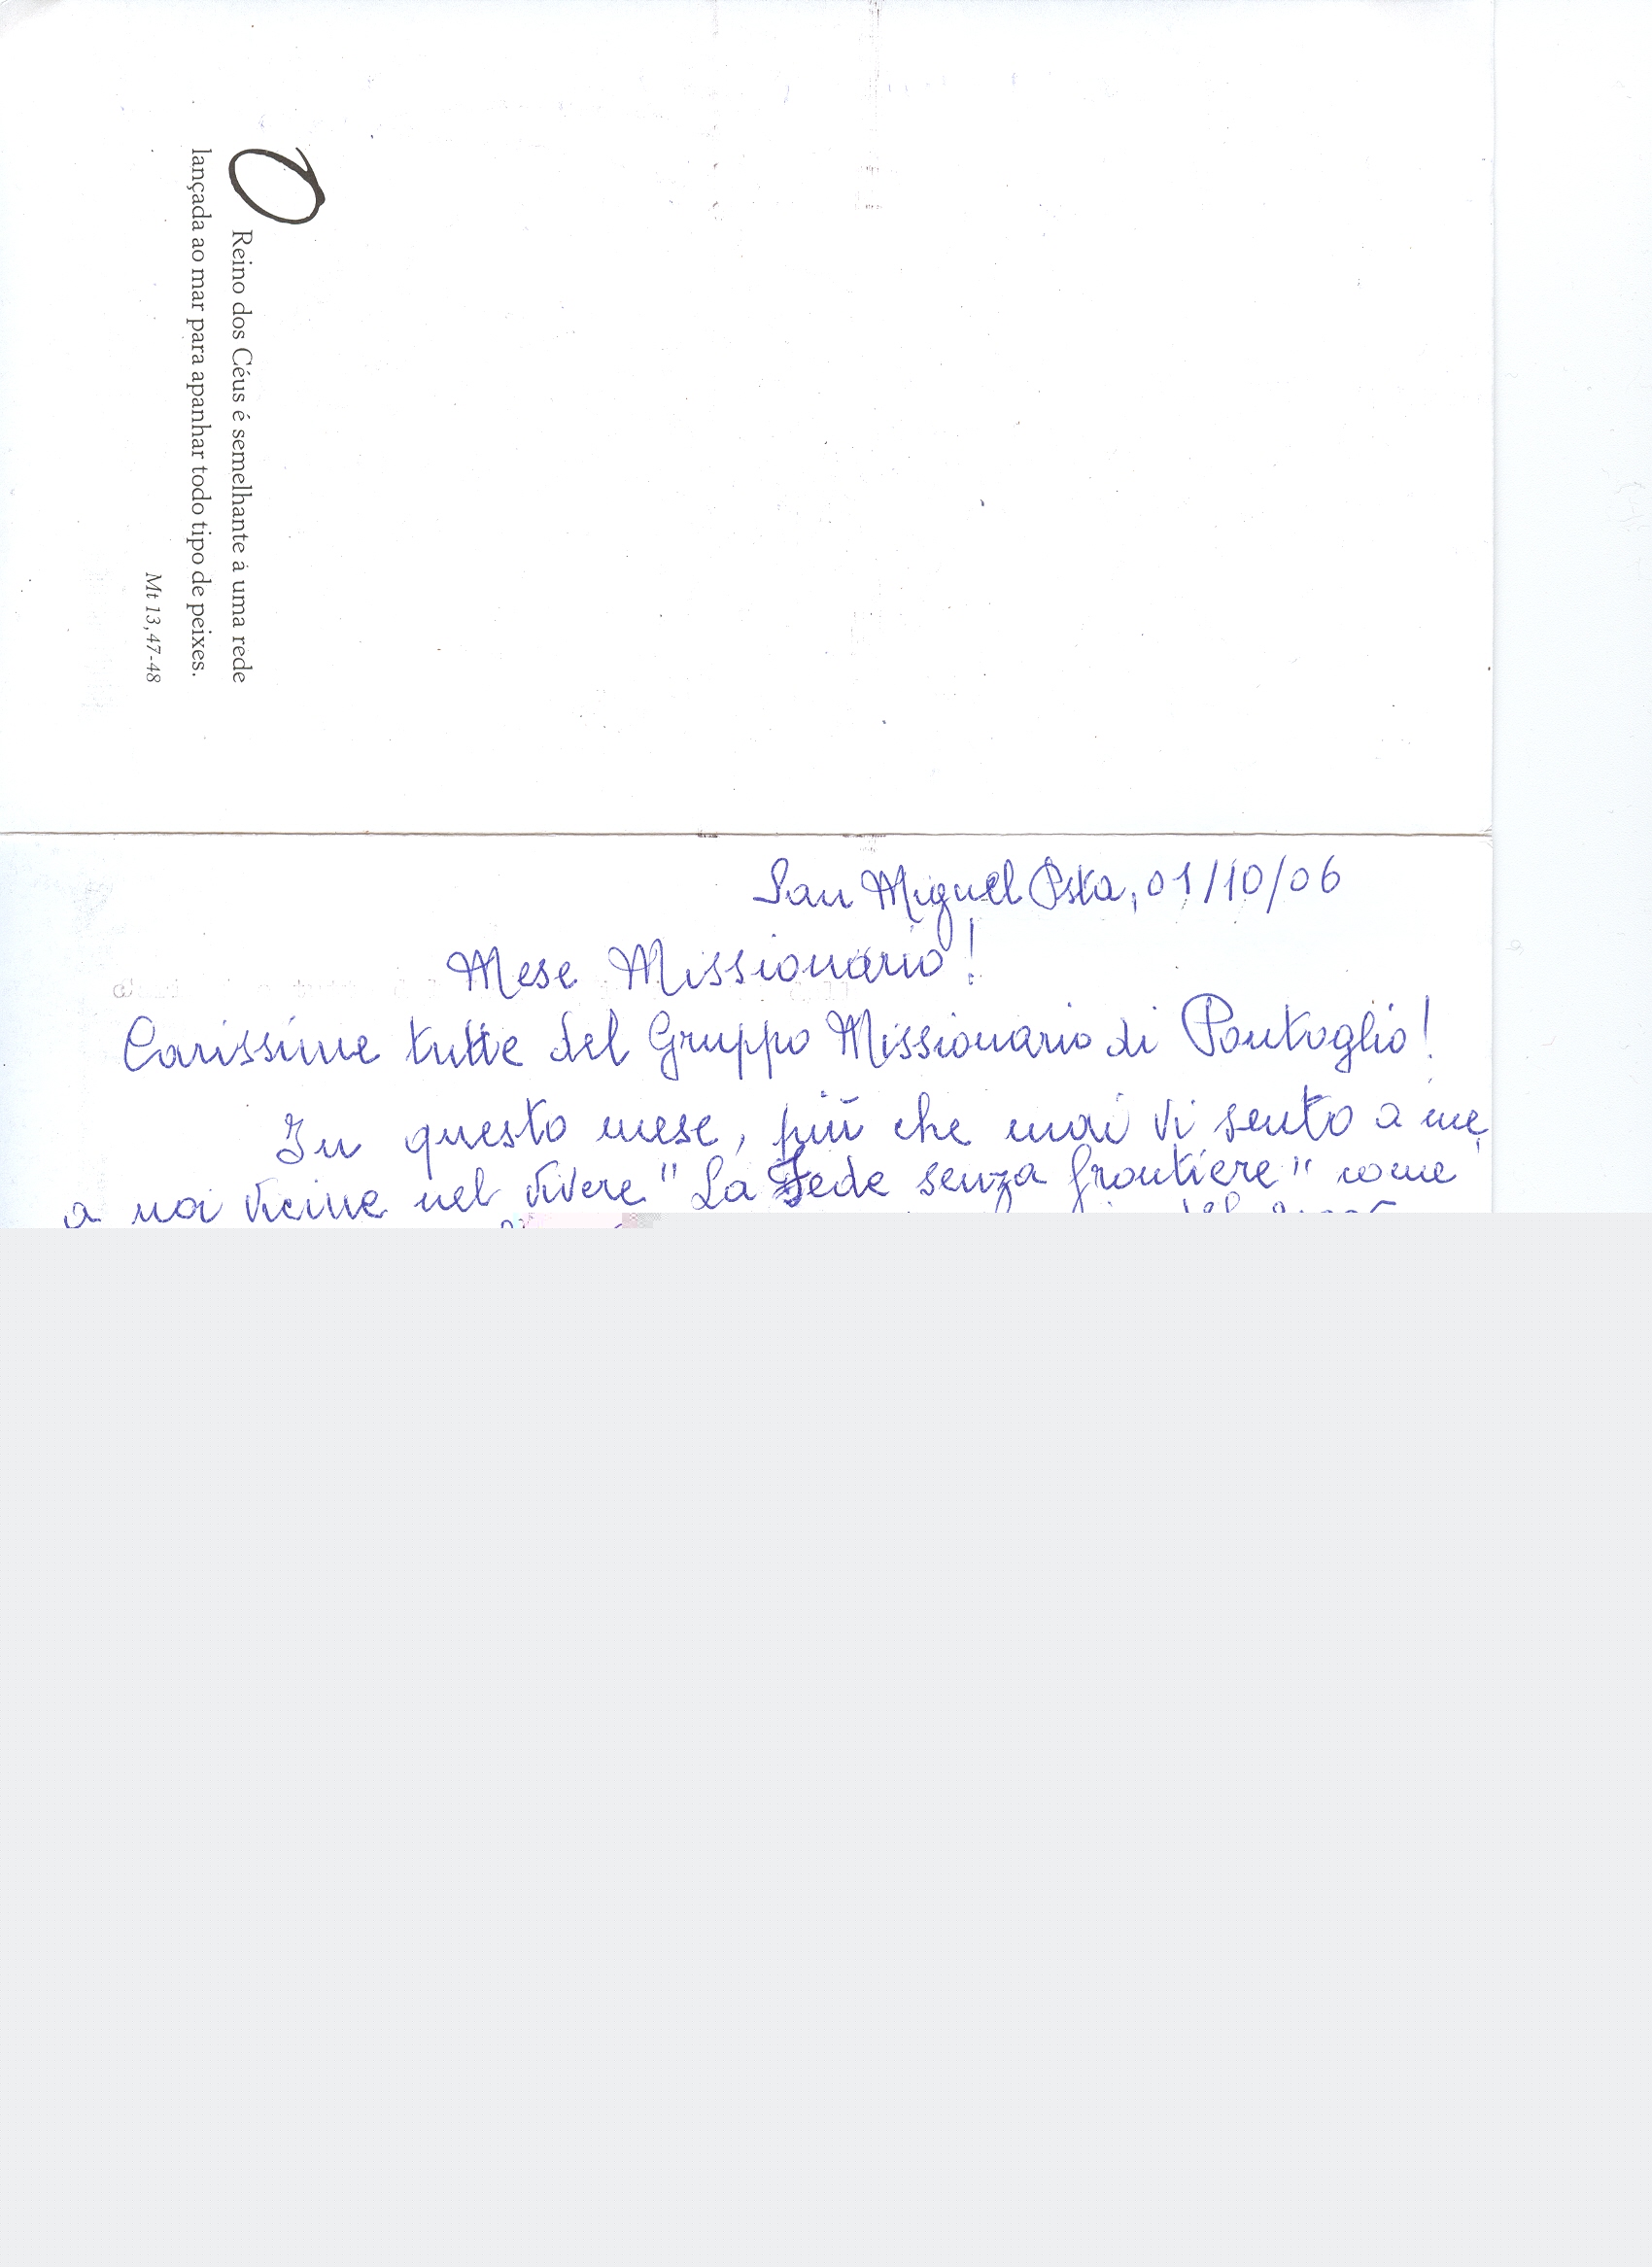 O Reino dos Céus é semelhante à uma rede
lançada ao mar para apanhar todo tipo de peixes.
Mt 13,47-48
San Miguel Psta, 01/10/06
Mese Missionario!
Carissime tutte del Gruppo Missionario di Pontoglio!
In questo mese, più che mai vi sento a me,
a noi vicine nel vivere "La Fede senza frontiere" come